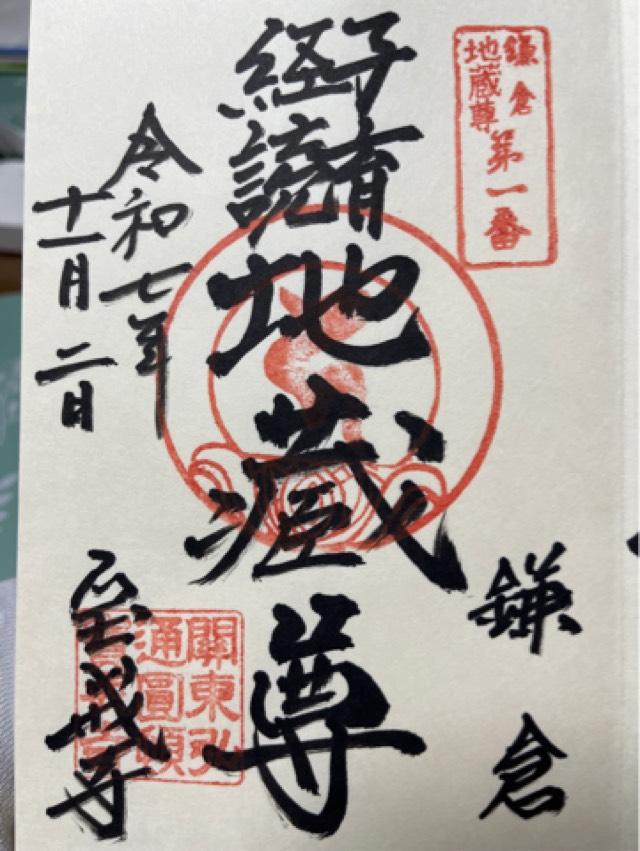 鎌倉
地蔵尊
第一番
鎌倉
子育
経読
地蔵尊
令和七年
十一月二日
宝戒寺
關東弘
通圓頓
寶戒寺